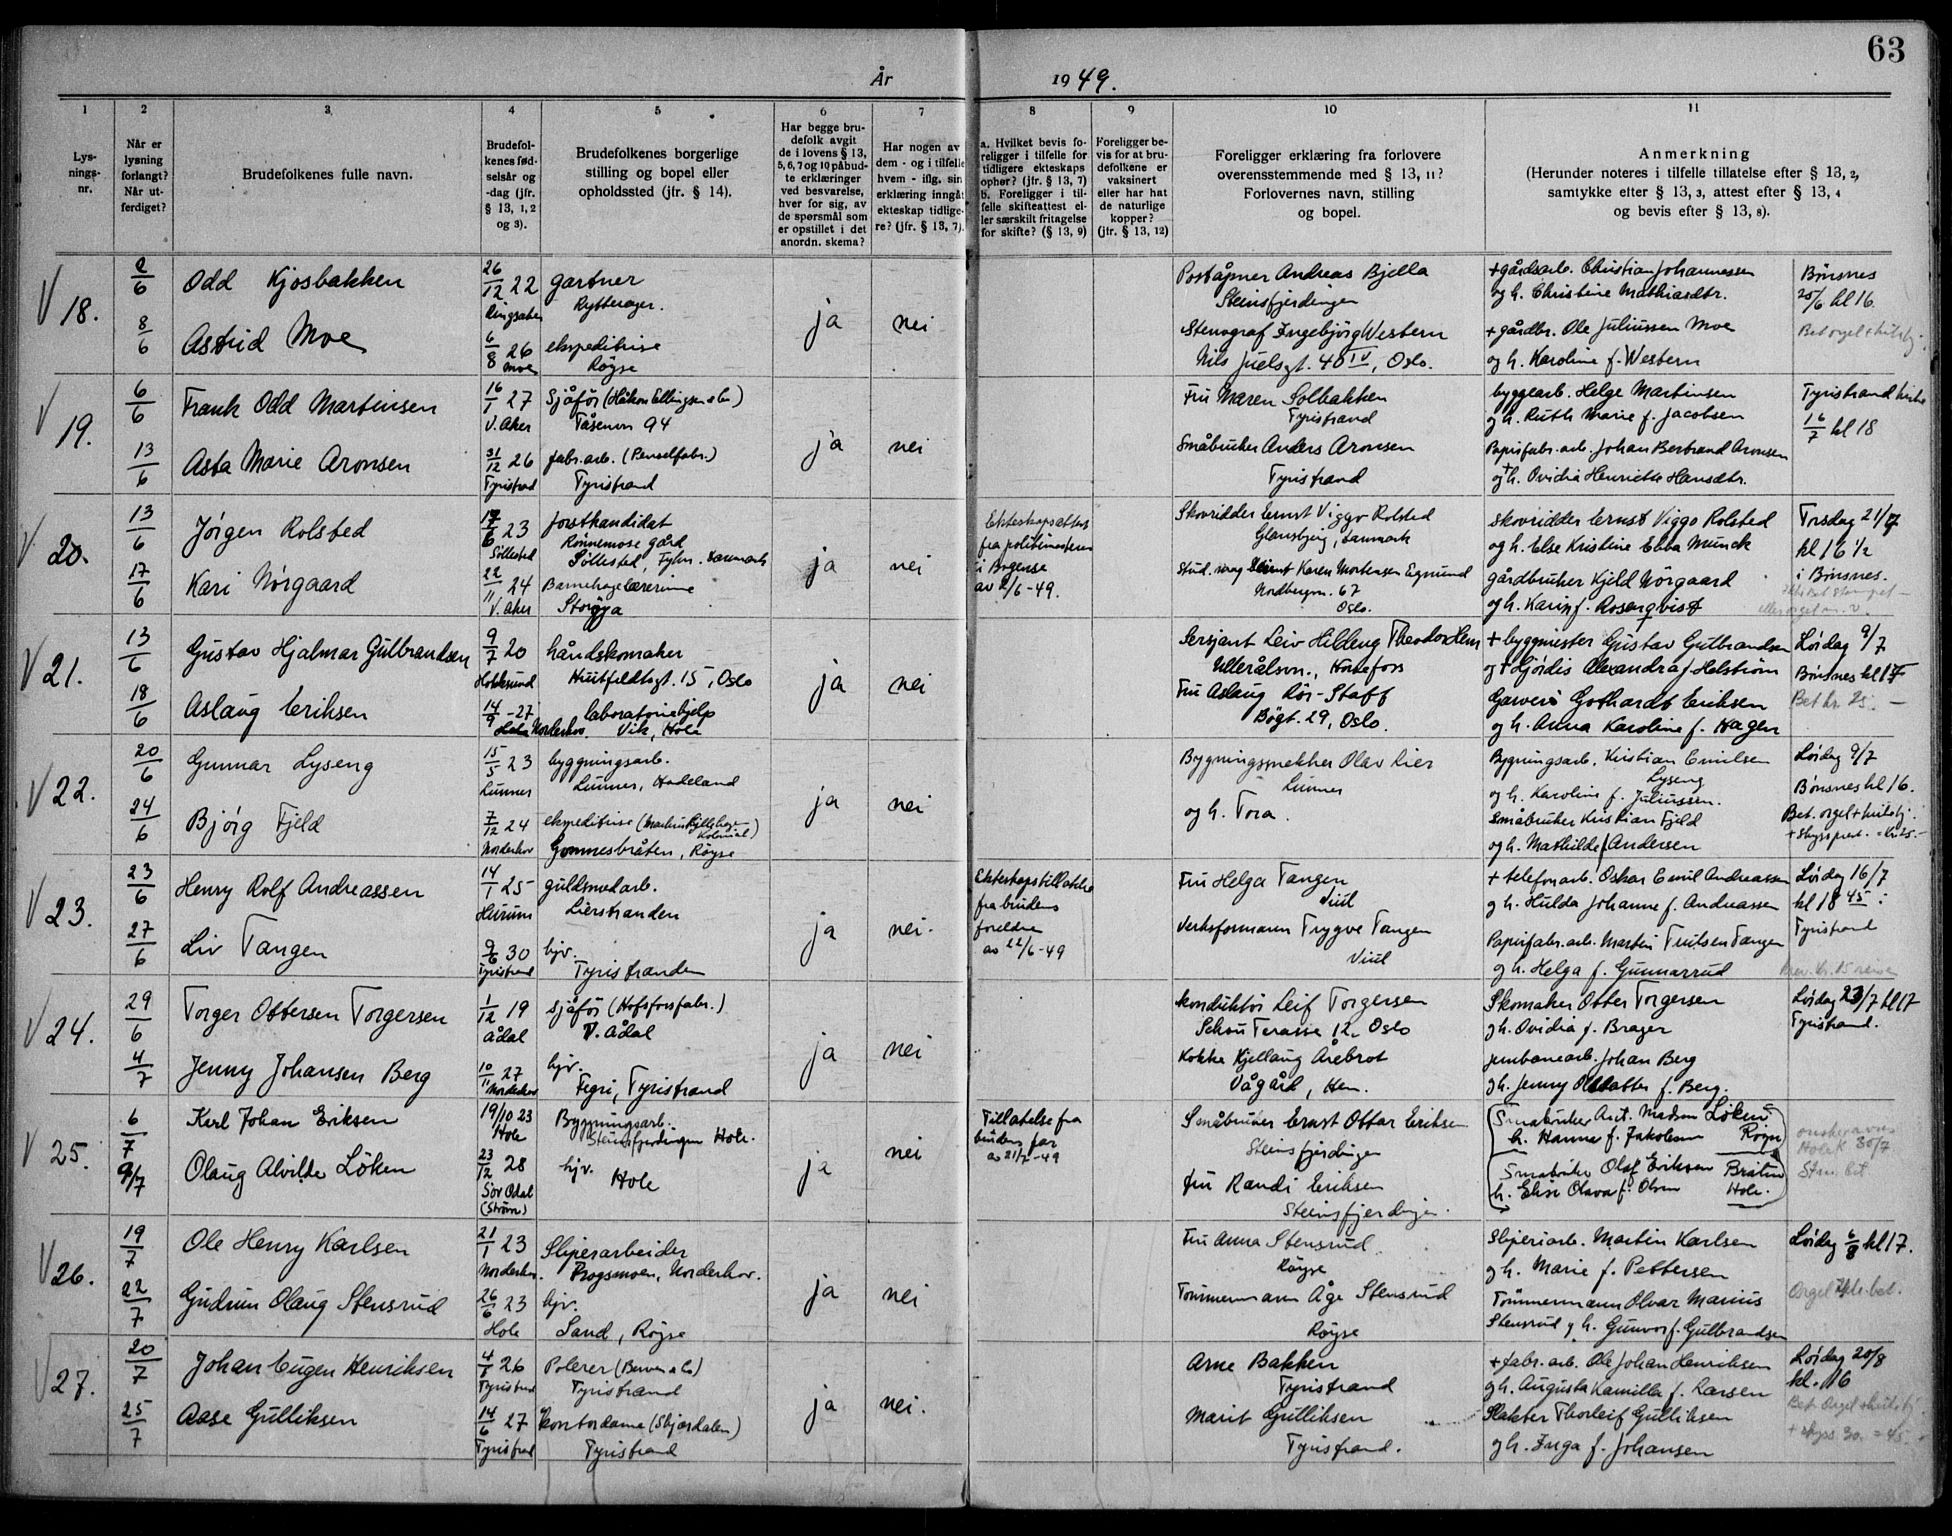 63
År 1949.
1 2 3 4 5 6 7 8 9 10 11
Lys-
nings-
nr.
Når er
lysning
forlangt?
Når ut-
ferdiget?
Brudefolkenes fulle navn.
Brudefol-
kenes fød-
selsår og
-dag (jfr.
§ 13, 1, 2
og 3).
Brudefolkenes borgerlige
stilling og bopel eller
opholdssted (jfr. § 14).
Har begge bru-
defolk avgit
de i lovens § 13,
5, 6, 7 og 10 påbud-
te erklæringer
ved besvarelse,
hver for sig, av
de spørsmål som
er opstillet i det
anordn. skema?
Har nogen av
dem - og i tilfelle
hvem - iflg. sin
erklæring inngåt
ekteskap tidlige-
re? (jfr. § 13, 7).
a. Hvilket bevis fo-
religger i tilfelle for
tidligere ekteskaps
ophør? (jfr. § 13, 7)
b. Foreligger i til-
felle skifteattest el-
ler særskilt fritagelse
for skifte? (§ 13, 9)
Foreligger be-
vis for at bru-
defolkene er
vaksinert
eller har hat
de naturlige
kopper?
(jfr. § 13, 12)
Foreligger erklæring fra forlovere
overensstemmende med § 13, 11?
Forlovernes navn, stilling
og bopel.
Anmerkning
(Herunder noteres i tilfelle tillatelse efter § 13, 2,
samtykke efter § 13, 3, attest efter § 13, 4
og bevis efter § 13, 8).
V 18.
2/6
Odd Kjosbakken
26/12 22
Ringsaker
gartner
Rytterager.
8/6
Astrid Moe
6/8 26
Moe
ekspeditrise
Röyse
ja
nei
Poståpner Andreas Bjella
Steinsfjerdingen
Stenograf Ingebjörg Western
Nils Juelsgt. 40 IV, Oslo.
+ gårdsarb. Christian Johannessen
og h. Christine Mathiasdtr.
+ gårdbr. Ole Juliussen Moe
og h. Karoline f. Western
Bönsnes
25/6 kl 16.
V 19.
6/6
Frank Odd Martinsen
16/1 27
V. Aker
Sjåför (Håkon Ellingsen & Co)
Tåsenvn 94
13/6
Asta Marie Aronsen
31/12 26
Tyristrand
fabr. arb. (Penselfabr.)
Tyristrand
ja
nei
Fru Maren Solbakken
Tyristrand
Småbruker Anders Aronsen
Tyristrand
byggearb. Helge Martinsen
og h. Ruth Marie f. Jacobsen
Papirfabr. arb. Johan Bertrand Aronsen
og + h. Ovidia Henriette Hansdtr.
Tyristrand kirke
16/7 kl 18
V 20.
13/6
Jörgen Rolsted
23
Söllested
forstkandidat
Rönnemose gård
Söllested, Fyn. Danmark
17/6
Kari Nörgaard
22/11 24
V. Aker
Barnehagelærerinne
Storöya
ja
nei
Ekteskapsattest
fra politimesteren
i Bogense
av 2/6 - 49.
Skovridder Ernst Viggo Rolsted
Danmark
Karen Mortensen Egmund
Nordbergvn. 67
Oslo.
Skovridder Ernst Viggo Rolsted
og h. Else Kristine Ebba Munck
gårdbruker Kjeld Nörgaard
og h. Karin f. Rosenqvist
Torsdag 21/7
kl 16 1/2
i Bönsnes.
V 21.
13/6
Gustav Hjalmar Gulbrandsen
9/7 20
Hokksund
håndskomaker
Huitfeldtsgt. 15, Oslo
18/6
Aslaug Eriksen
14/9 - 27
Norderhov.
laboratoriehjelp
Vik, Hole
ja
nei
Sersjant Leiv Hilding Theodor Hem
Ullerålsvn., Hönefoss
Fru Aslaug Rör-Staff
Bögt. 29, Oslo.
+ byggmester Gustav Gulbrandsen
og + Hjördis Alexandra f. Holström
Garveri Gothardt Eriksen
og h. Anna Karoline f. Hagen
Lördag 9/7
Bönsnes kl 17
Bet kr. 25. -
V 22.
20/6
Gunnar Lyseng
15/5 23
Lunner
byggningsarb.
Lunner, Hadeland
24/6
Bjørg Fjeld
7/12 24
Norderhov
ekspeditrise
Kolonial)
Gomnesbråten, Röyse
ja
nei
Bygningssnekker Olav Lier
Lunner
og h. Tora.
Bygningsarb. Kristian Emilsen
Lyseng
og h. Karoline f. Juliussen.
Småbruker Kristian Fjeld
og h. Mathilde f. Andersen
Lördag 9/7
Bönsnes kl 16.
Bet. orgel +
V 23.
23/6
Henry Rolf Andreassen
14/1 25
Hurum
gullsmedarb.
Lierstranden
27/6
Liv Tangen
9/6 30
Tyristrand
hjv.
Tyristranden
ja
nei.
Ekteskapstillatelse
fra brudens
foreldre
av 22/6 - 49
Fru Helga Tangen
Viul
Verksformann Trygve Tangen
Viul
+ telefonarb. Oskar Emil Andreassen
g h. Hulda Johanne f. Andreassen
Papirfabr. arb. Martin Tangen
g h. Helga f. Gunnarrud
Lördag 16/7
kl 18 45
Tyristrand
V 24.
29/6
Torger Ottersen Torgersen
1/12 19
Ådal
Sjåför (Hofsfossfabr.)
V. Ådal
4/7
Jenny Johansen Berg
10/11 27
Norderhov
hjv.
Fegri, Tyristrand
ja
nei
konduktör Leif Torgersen
Schou Terasse 12, Oslo
Kokke Kjellaug Årebrot
Vågård, Hen.
Skomaker Otter Torgersen
g h. Ovidia f. Brager
jernbanearb. Johan Berg
g h. Jenny f. Berg.
Lördag 23/7 kl 17
Tyristrand.
V 25.
6/7
Karl Johan Eriksen
19/10 23
Hole
Bygningsarb.
Steinsfjerdingen Hole.
9/7
Olaug Alvilde Löken
23/12 28
Sör Odal
(Ström)
hjv. Hole
ja
nei
Tillatelse fra
brudens far
av 21/7 - 49
Småbruker Ernst Ottar Eriksen
Steinsfjerdingen
Fru Randi Eriksen
Steinsfjerdingen.
Småbruker Ant. Madsen Löken
h. Hanna f. Jakobsen Röyse
Småbruker Olaf Eriksen
h. Elise Olava f. Olsen Hole.
30/7
V 26.
19/7
Ole Henry Karlsen
21/1 23
Norderhov.
Sliperarbeider
Norderhov.
22/7
Gudrun Olaug Stensrud
26/6 23
Hole
hjv.
Sand, Röyse
ja
nei
Fru Anna Stensrud.
Röyse
Tömmermann Åge Stensrud
Röyse
Sliperiarb. Martin Karlsen
g h. Marie f. Pettersen
Tömmermann Olvar Marius
Stensrud g h. Gunvor f. Gulbrandsen
Lördag 6/8 kl 17.
V 27.
20/7
Johan Eugen Henriksen
26
Tyristrand
Polerer
Tyristrand
25/7
Aase Gulliksen
14/6 27
Tyristrand
kontordame (Skjærdalen)
Tyristrand
ja
nei.
Arne Bakken
Tyristrand
Marit Gulliksen
Tyristrand.
+ fabr. arb. Ole Johan Henriksen
g h. Augusta Kamilla f. Larsen
Slakter Thorleif Gulliksen
g h. Inga f. Johansen
Lördag 20/8
kl. 16